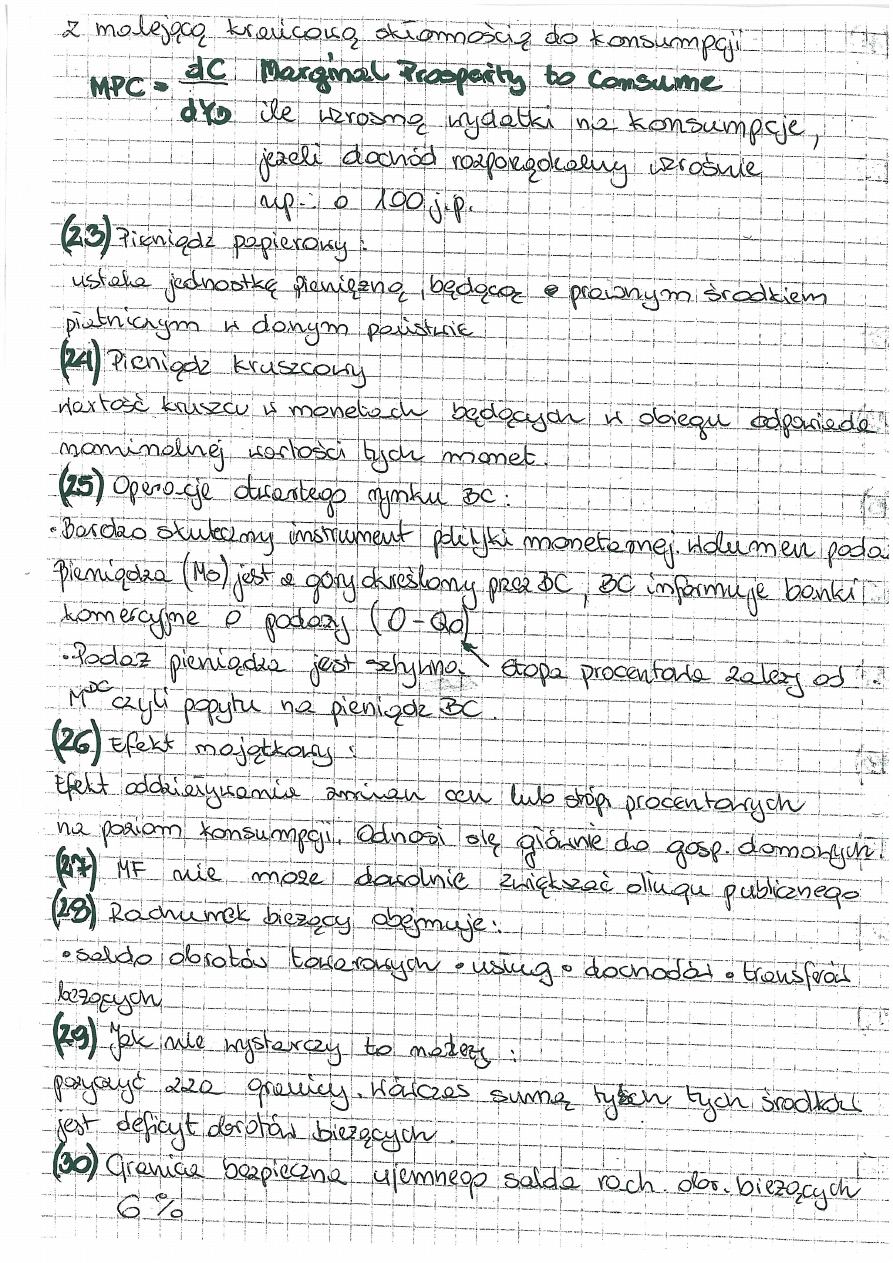 z malejącą krańcową skłonnością do konsumpcji
MPC = dC/dYD Marginal Prosperity to Consume
ile wzrosną wydatki na konsumpcje,
jeżeli dochód rozporządzalny wzrośnie
np. o 100 j.p.
(23) Pieniądz papierowy:
ustala jednostkę pieniężną, będącą prawnym środkiem
płatniczym w danym państwie
(24) Pieniądz kruszcowy
Wartość kruszcu w monetach będących w obiegu odpowiada
nominalnej wartości tych monet.
(25) Operacje otwartego rynku BC:
• Bardzo skuteczny instrument polityki monetarnej. Wolumen poda
pieniądza (Mo) jest z góry określony przez BC, BC informuje banki
komercyjne o podaży (0-Qo)
• Podaż pieniądza jest sztywna. Stopa procentowa zależy od
M^DC czyli popytu na pieniądz BC.
(26) Efekt majątkowy:
Efekt oddziaływania zmian cen lub stóp procentowych
na poziom konsumpcji. Odnosi się głównie do gosp. domowych.
(27) MF nie może dowolnie zwiększać długu publicznego
(28) Rachunek bieżący obejmuje:
• saldo obrotów towarowych • usług • dochodów • transferów
bieżących
(29) Jak nie wystarczy to należy:
pożyczyć zza granicy. Wówczas sumą tych środków
jest deficyt obrotów bieżących.
(30) Granica bezpieczna ujemnego salda rach. obr. bieżących
6%